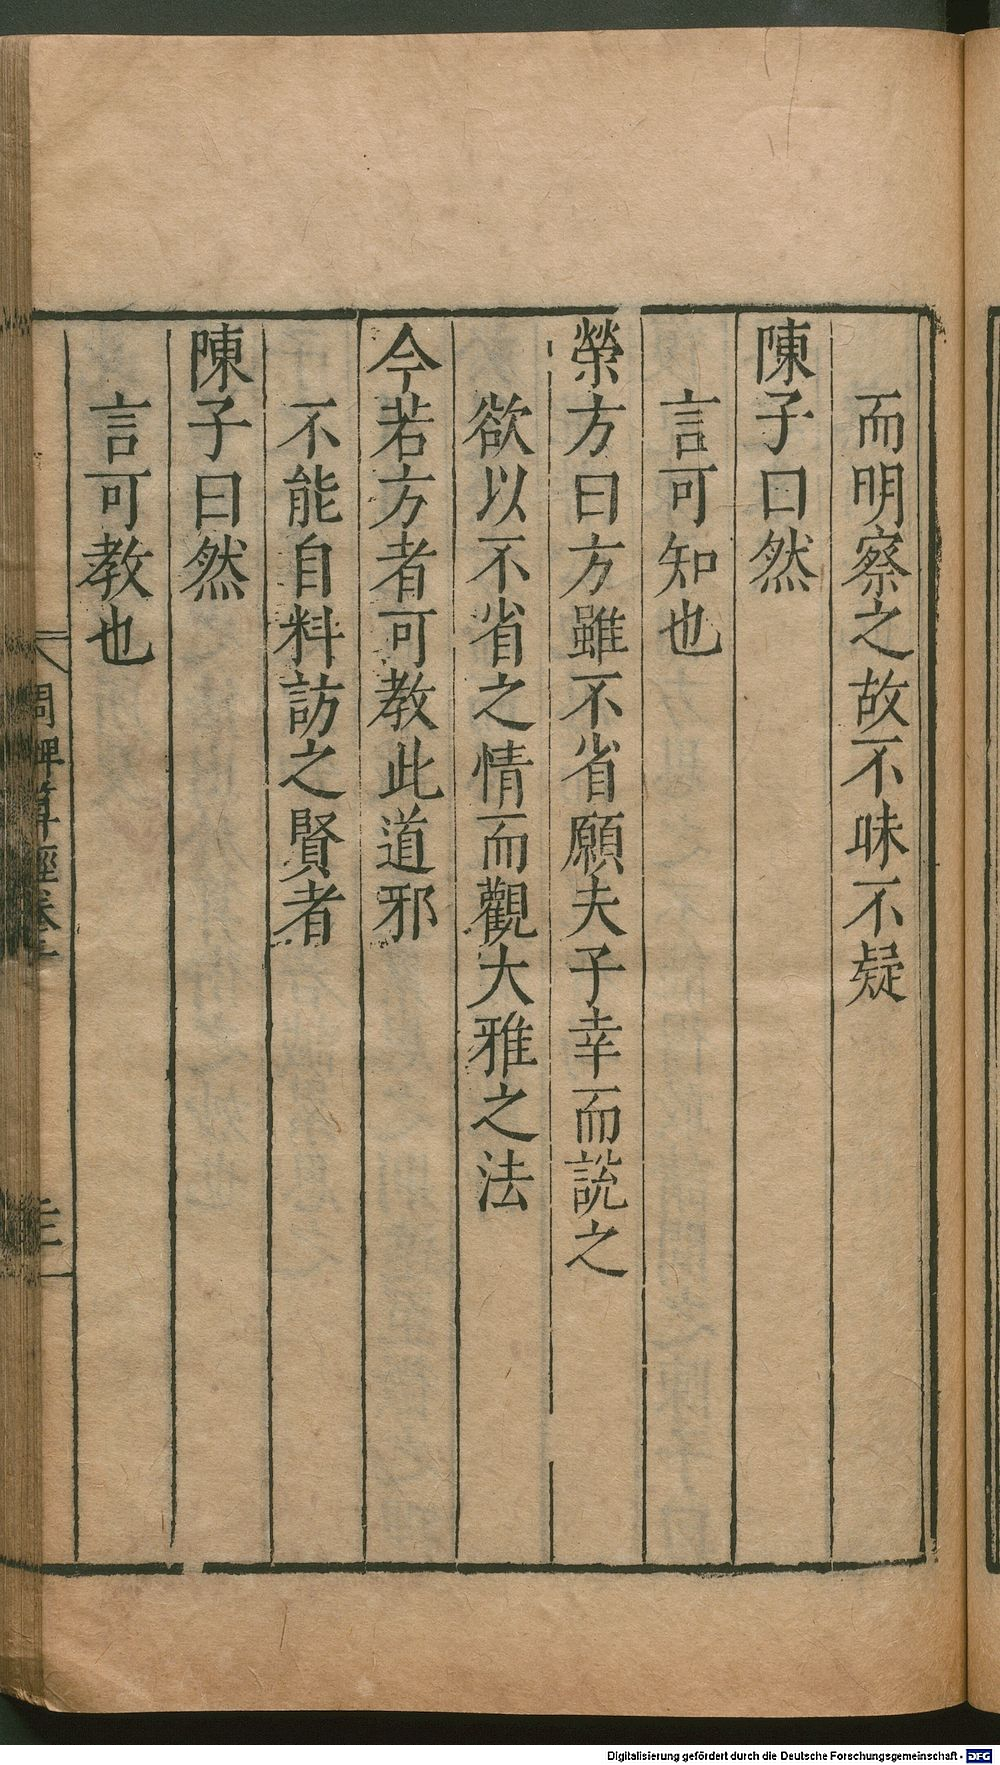 而明察之故不昧不疑
陳子曰然
言可知也
榮方曰方雖不省願夫子幸而說之
欲以不省之情而觀大雅之法
今若方者可教此道邪
不能自料訪之賢者
陳子曰然
言可教也
周髀算經卷上
Digitalisierung gefördert durch die Deutsche Forschungsgemeinschaft - DFG